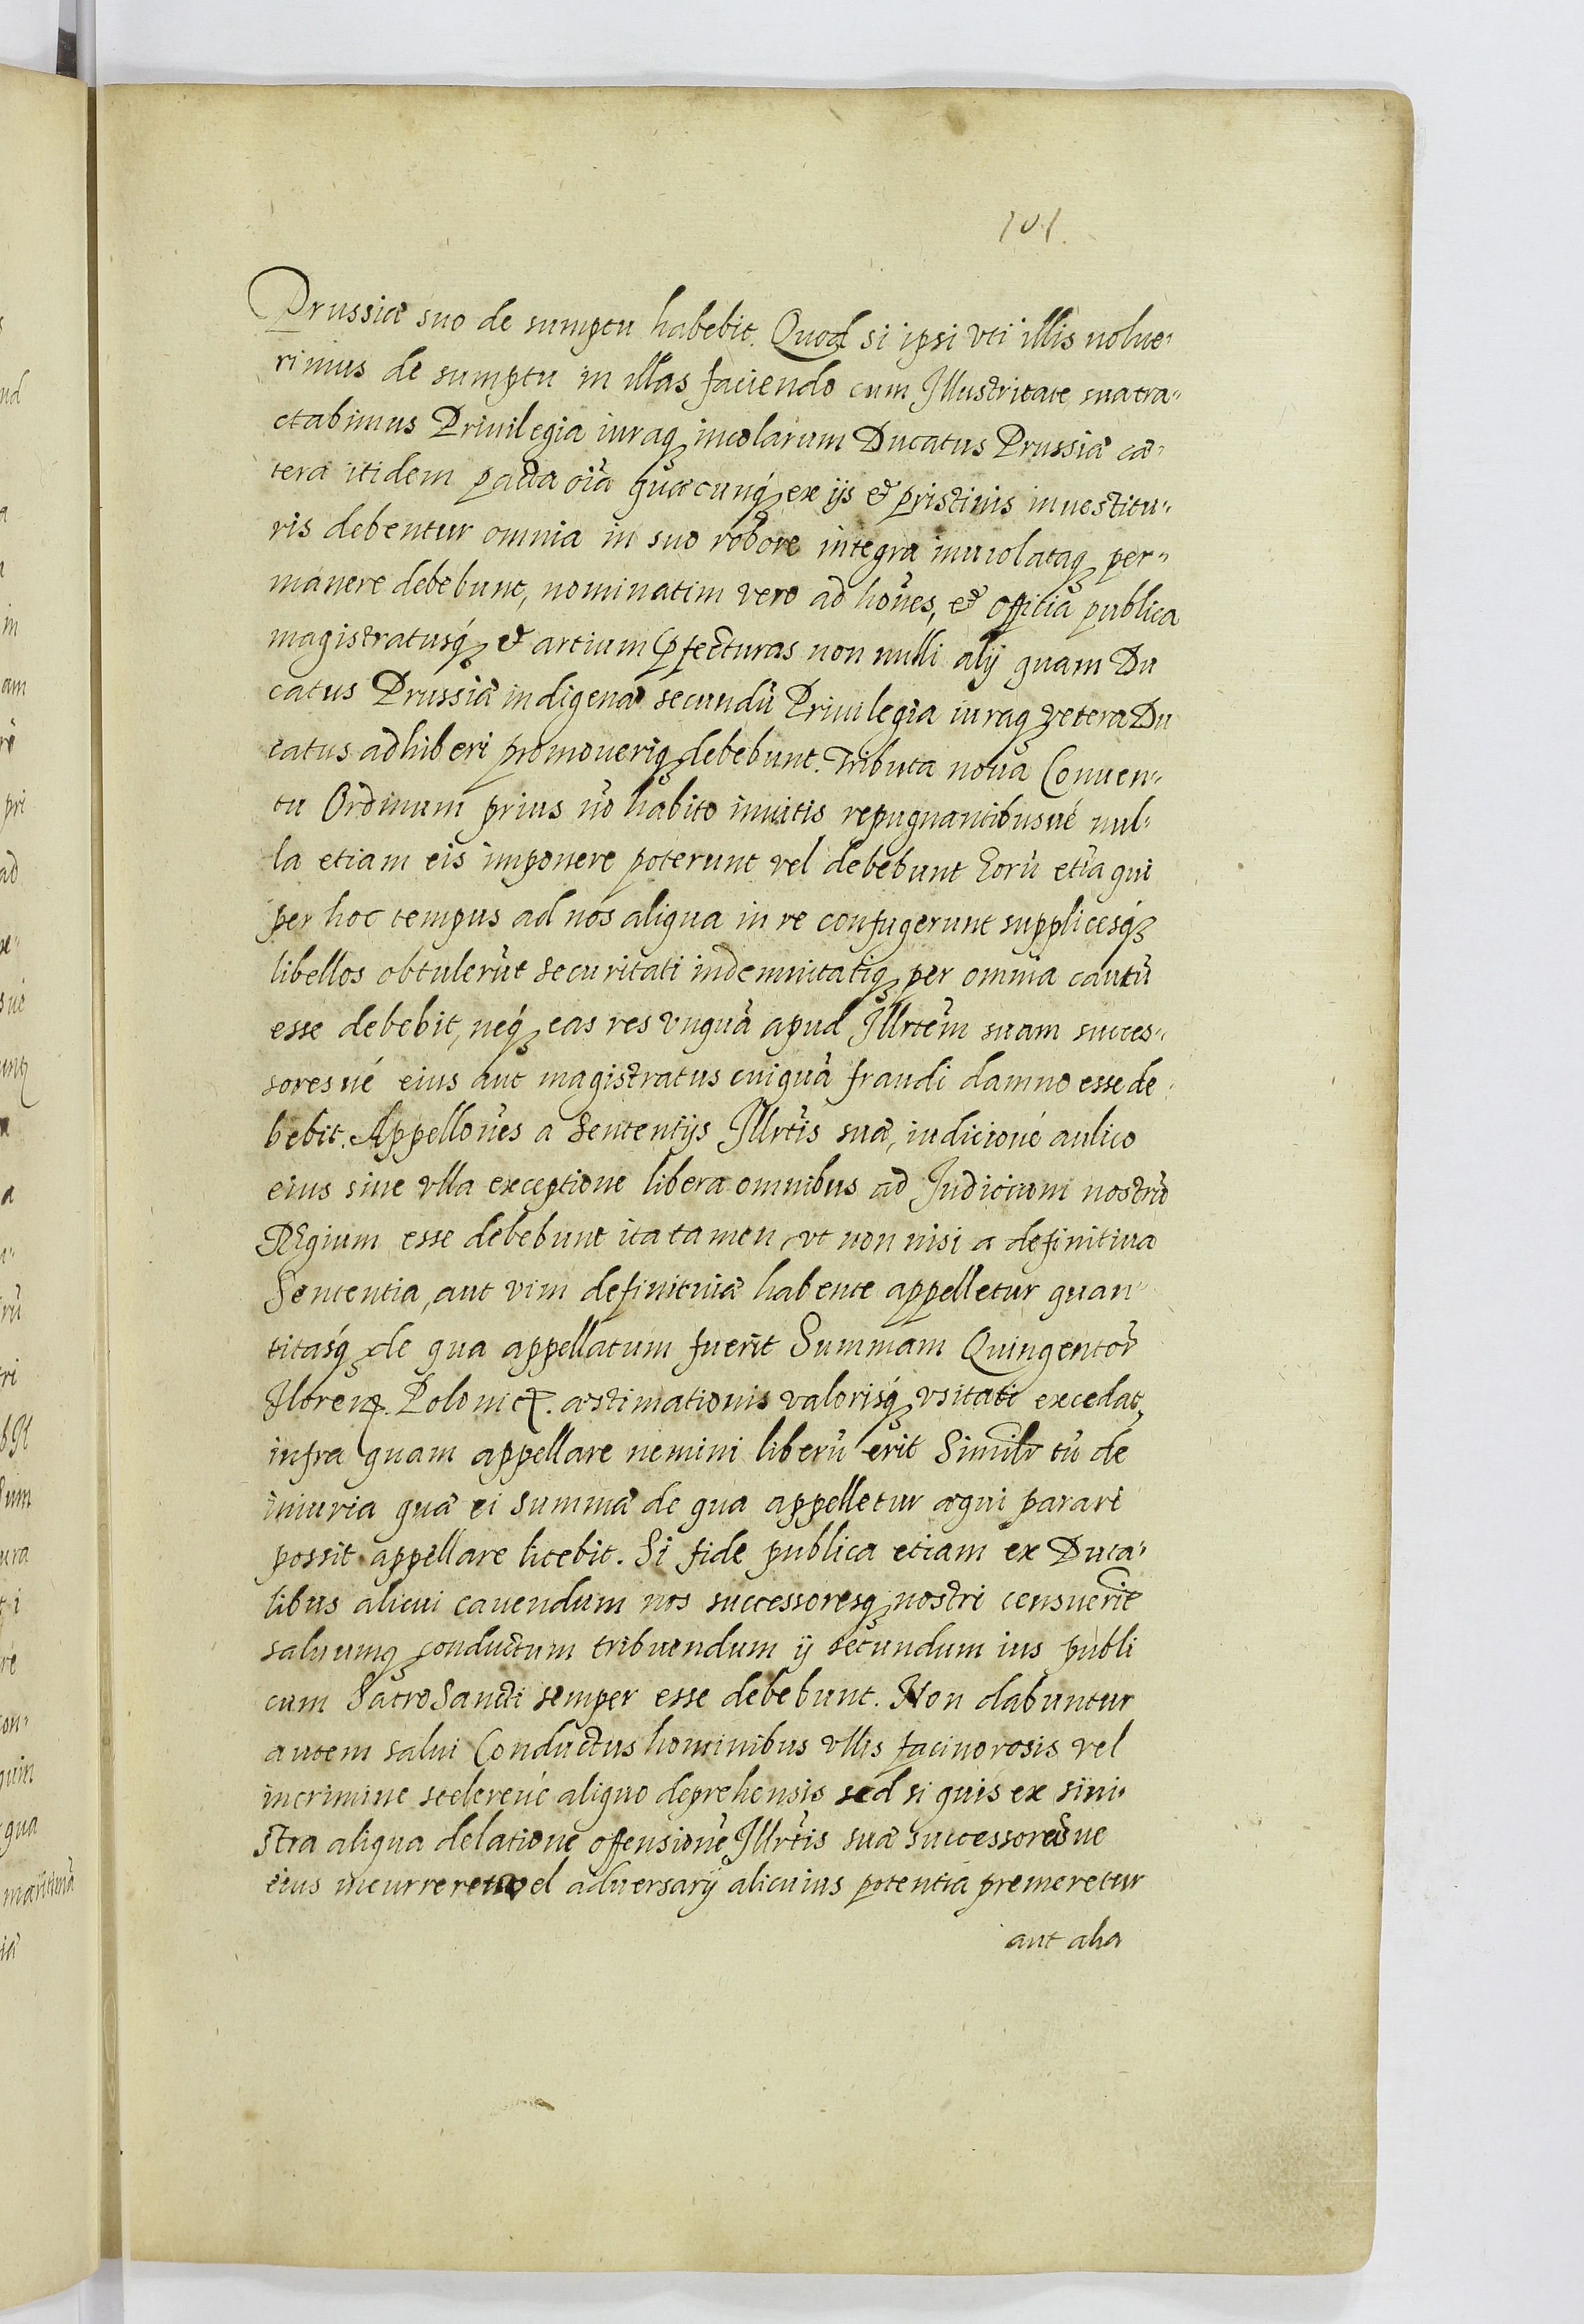 101.
Prussiæ suo de sumptu habebit. Quod si ipsi vti illis volue-
rimus de sumptu in illas faciendo cum Illustritate sua tra-
ctabimus Priuilegia iuraq3 incolarum Ducatus Prussiæ cæ-
tera itidem pacta oĩa quæcunq3 ex ijs et pristinis inuestitu-
ris debentur omnia in suo robore integra inuiolataq3 per-
manere debebunt, nominatim vero ad hoñes, et officia publica
magistratusq3 et artium p̃fecturas non nulli alij quam Du
catus Prussiæ indigenæ secundũ Priuilegia iuraq3 vetera Du
catus adhiberi promoueriq3 debebunt. Tributa noua Conuen-
tu Ordinum prius nõ habito inuitis repugnantibusué nul-
la etiam eis imponere poterunt vel debebunt Eorũ etiã qui
per hoc tempus ad nos aliqua in re confugerunt supplicesq3
libellos obtulerũt securitati indemnitatiq3 per omnia cautũ
esse debebit, neq3 eas res vnquã apud Illrtẽm suam succes-
soresué eius aut magistratus cuiquã fraudi damno esse de
bebit. Appelloẽs a Sententijs Illrtĩs suæ, iudicioué aulico
eius siue vlla exceptione libera omnibus ad Judicium nostrũ
REgium esse debebunt ita tamen vt non nisi a definitiua
Sententia, aut vim definitiuæ habente appelletur quan-
titasq3 de qua appellatum fuerit Summam Quingentoꝝ
Florenꝝ. Polonicꝝ. æstimationis valorisq3 vsitati excedat,
infra quam appellare nemini liberũ erit Similr tũ de
iniuria quæ ei summæ de qua appelletur æqui parari
possit appellare licebit. Si fide publica etiam ex Duca-
libus alicui cauendum nos successoresq3 nostri censuerit
saluumq3 conductum tribuendum ij secundum ius publi
cum SacroSancti semper esse debebunt. Non dabuntur
autem salui Conductus hominibus vllis facinorosis vel
in crimine scelereué aliquo deprehensis sed si quis ex sini-
stra aliqua delatione offensionẽ Illrtĩs suæ successorũsue
eius incurreret vel adversarij alicuius potentia premeretur
aut alia